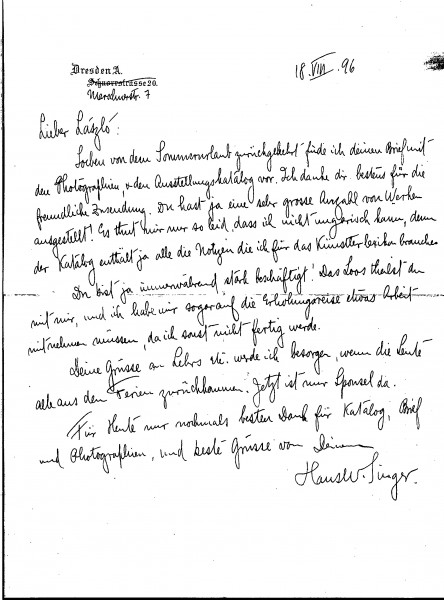 Dresden A.
Schnorrstrasse 20.
7
18. VIII. 96
Lieber László:
Soeben von dem Sommerurlaub zurückgekehrt finde ich deinen Brief mit
den Photographien, u den Ausstellungskatalog vor. Ich danke dir bestens für die
freundliche Zusendung. Du hast ja eine sehr grosse Anzahl von Werken
ausgestellt! Es thut mir nur so leid, dass ich nicht ungarisch kann, denn
der Katalog enthält ja alle die Notizen die ich für das Künstlerlexikon brauche.
Du bist ja immerwährend stark beschäftigt! Das Loos theilst du
mit mir, und ich habe mir sogar auf die Erholungsreise etwas Arbeit
mitnehmen müssen, da ich sonst nicht fertig werde.
Deine Grüsse an Lehrs etc. werde ich besorgen, wenn die Leute
alle aus den Ferien zurückkommen. Jetzt ist nur Sponsel da.
Für Heute nur nochmals besten Dank für Katalog, Brief
und Photographien, und beste Grüsse von Deinem
Hans W. Singer.